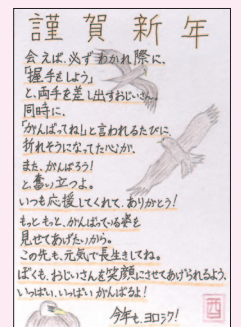 謹賀新年
会えば、必ずわかれ際に、
「握手をしよう」
と、両手を差し出すおじいさん。
同時に、
「がんばってね!」と言われるたびに
折れそうになってた心が、
また、がんばろう!
と奮い立つよ。
いつも応援してくれて、ありがとう!
もっともっと、がんばっている姿を
見せてあげたいから。
この先も、元気で長生きしてね。
ぼくも、おじいさんを笑顔にさせてあげられるよう、
いっぱい、いっぱいがんばるよ!
今年も、ヨロシク!
酉